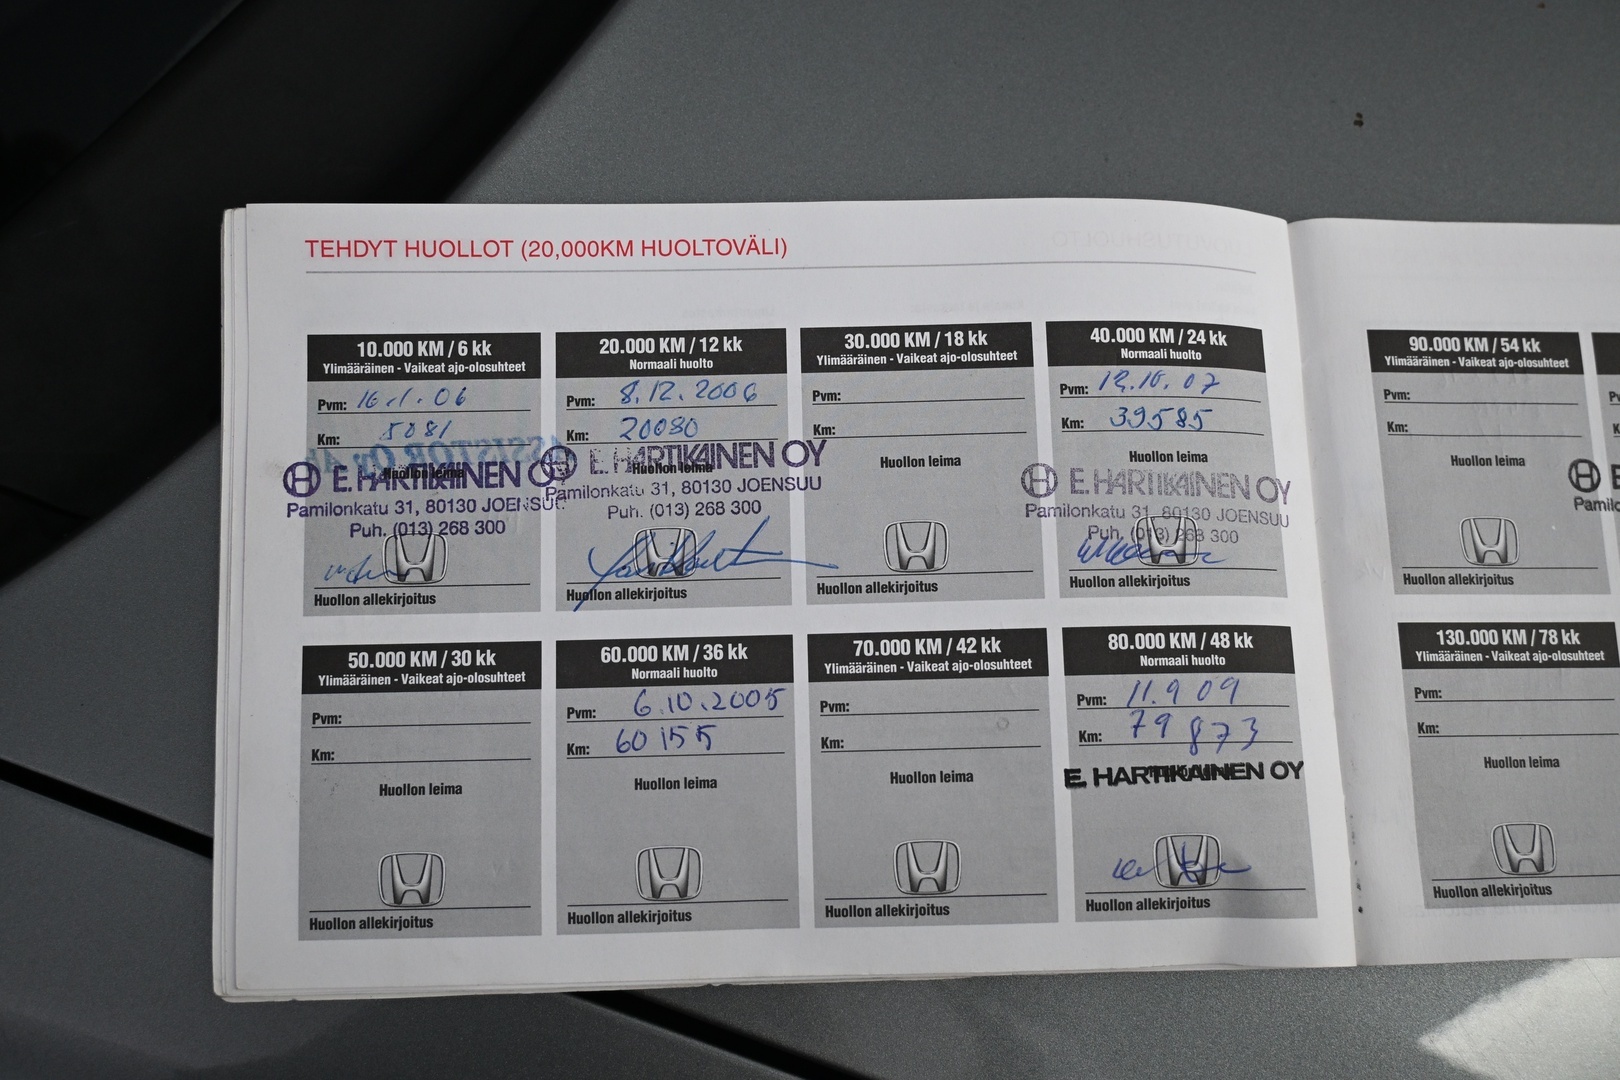 TEHDYT HUOLLOT (20,000KM HUOLTOVÄLI)
10.000 KM / 6 kk
Ylimääräinen - Vaikeat ajo-olosuhteet
Pvm: 16.1.06
Km: 5081
Huollon leima
E. HARTIKAINEN OY
Pamilonkatu 31, 80130 JOENSUU
Puh. (013) 268 300
Huollon allekirjoitus
20.000 KM / 12 kk
Normaali huolto
Pvm: 8.12.2006
Km: 20080
Huollon leima
E. HARTIKAINEN OY
Pamilonkatu 31, 80130 JOENSUU
Puh. (013) 268 300
Huollon allekirjoitus
30.000 KM / 18 kk
Ylimääräinen - Vaikeat ajo-olosuhteet
Pvm:
Km:
Huollon leima
Huollon allekirjoitus
40.000 KM / 24 kk
Normaali huolto
Pvm: 12.10.07
Km: 39585
Huollon leima
E. HARTIKAINEN OY
Pamilonkatu 31, 80130 JOENSUU
Puh. (013) 268 300
Huollon allekirjoitus
50.000 KM / 30 kk
Ylimääräinen - Vaikeat ajo-olosuhteet
Pvm:
Km:
Huollon leima
Huollon allekirjoitus
60.000 KM / 36 kk
Normaali huolto
Pvm: 6.10.2005
Km: 60155
Huollon leima
Huollon allekirjoitus
70.000 KM / 42 kk
Ylimääräinen - Vaikeat ajo-olosuhteet
Pvm:
Km:
Huollon leima
Huollon allekirjoitus
80.000 KM / 48 kk
Normaali huolto
Pvm: 11.9 09
Km: 79 873
E. HARTIKAINEN OY
Huollon allekirjoitus
90.000 KM / 54 kk
Ylimääräinen - Vaikeat ajo-olosuhteet
Pvm:
Km:
Huollon leima
Huollon allekirjoitus
130.000 KM / 78 kk
Ylimääräinen - Vaikeat ajo-olosuhteet
Pvm:
Km:
Huollon leima
Huollon allekirjoitus